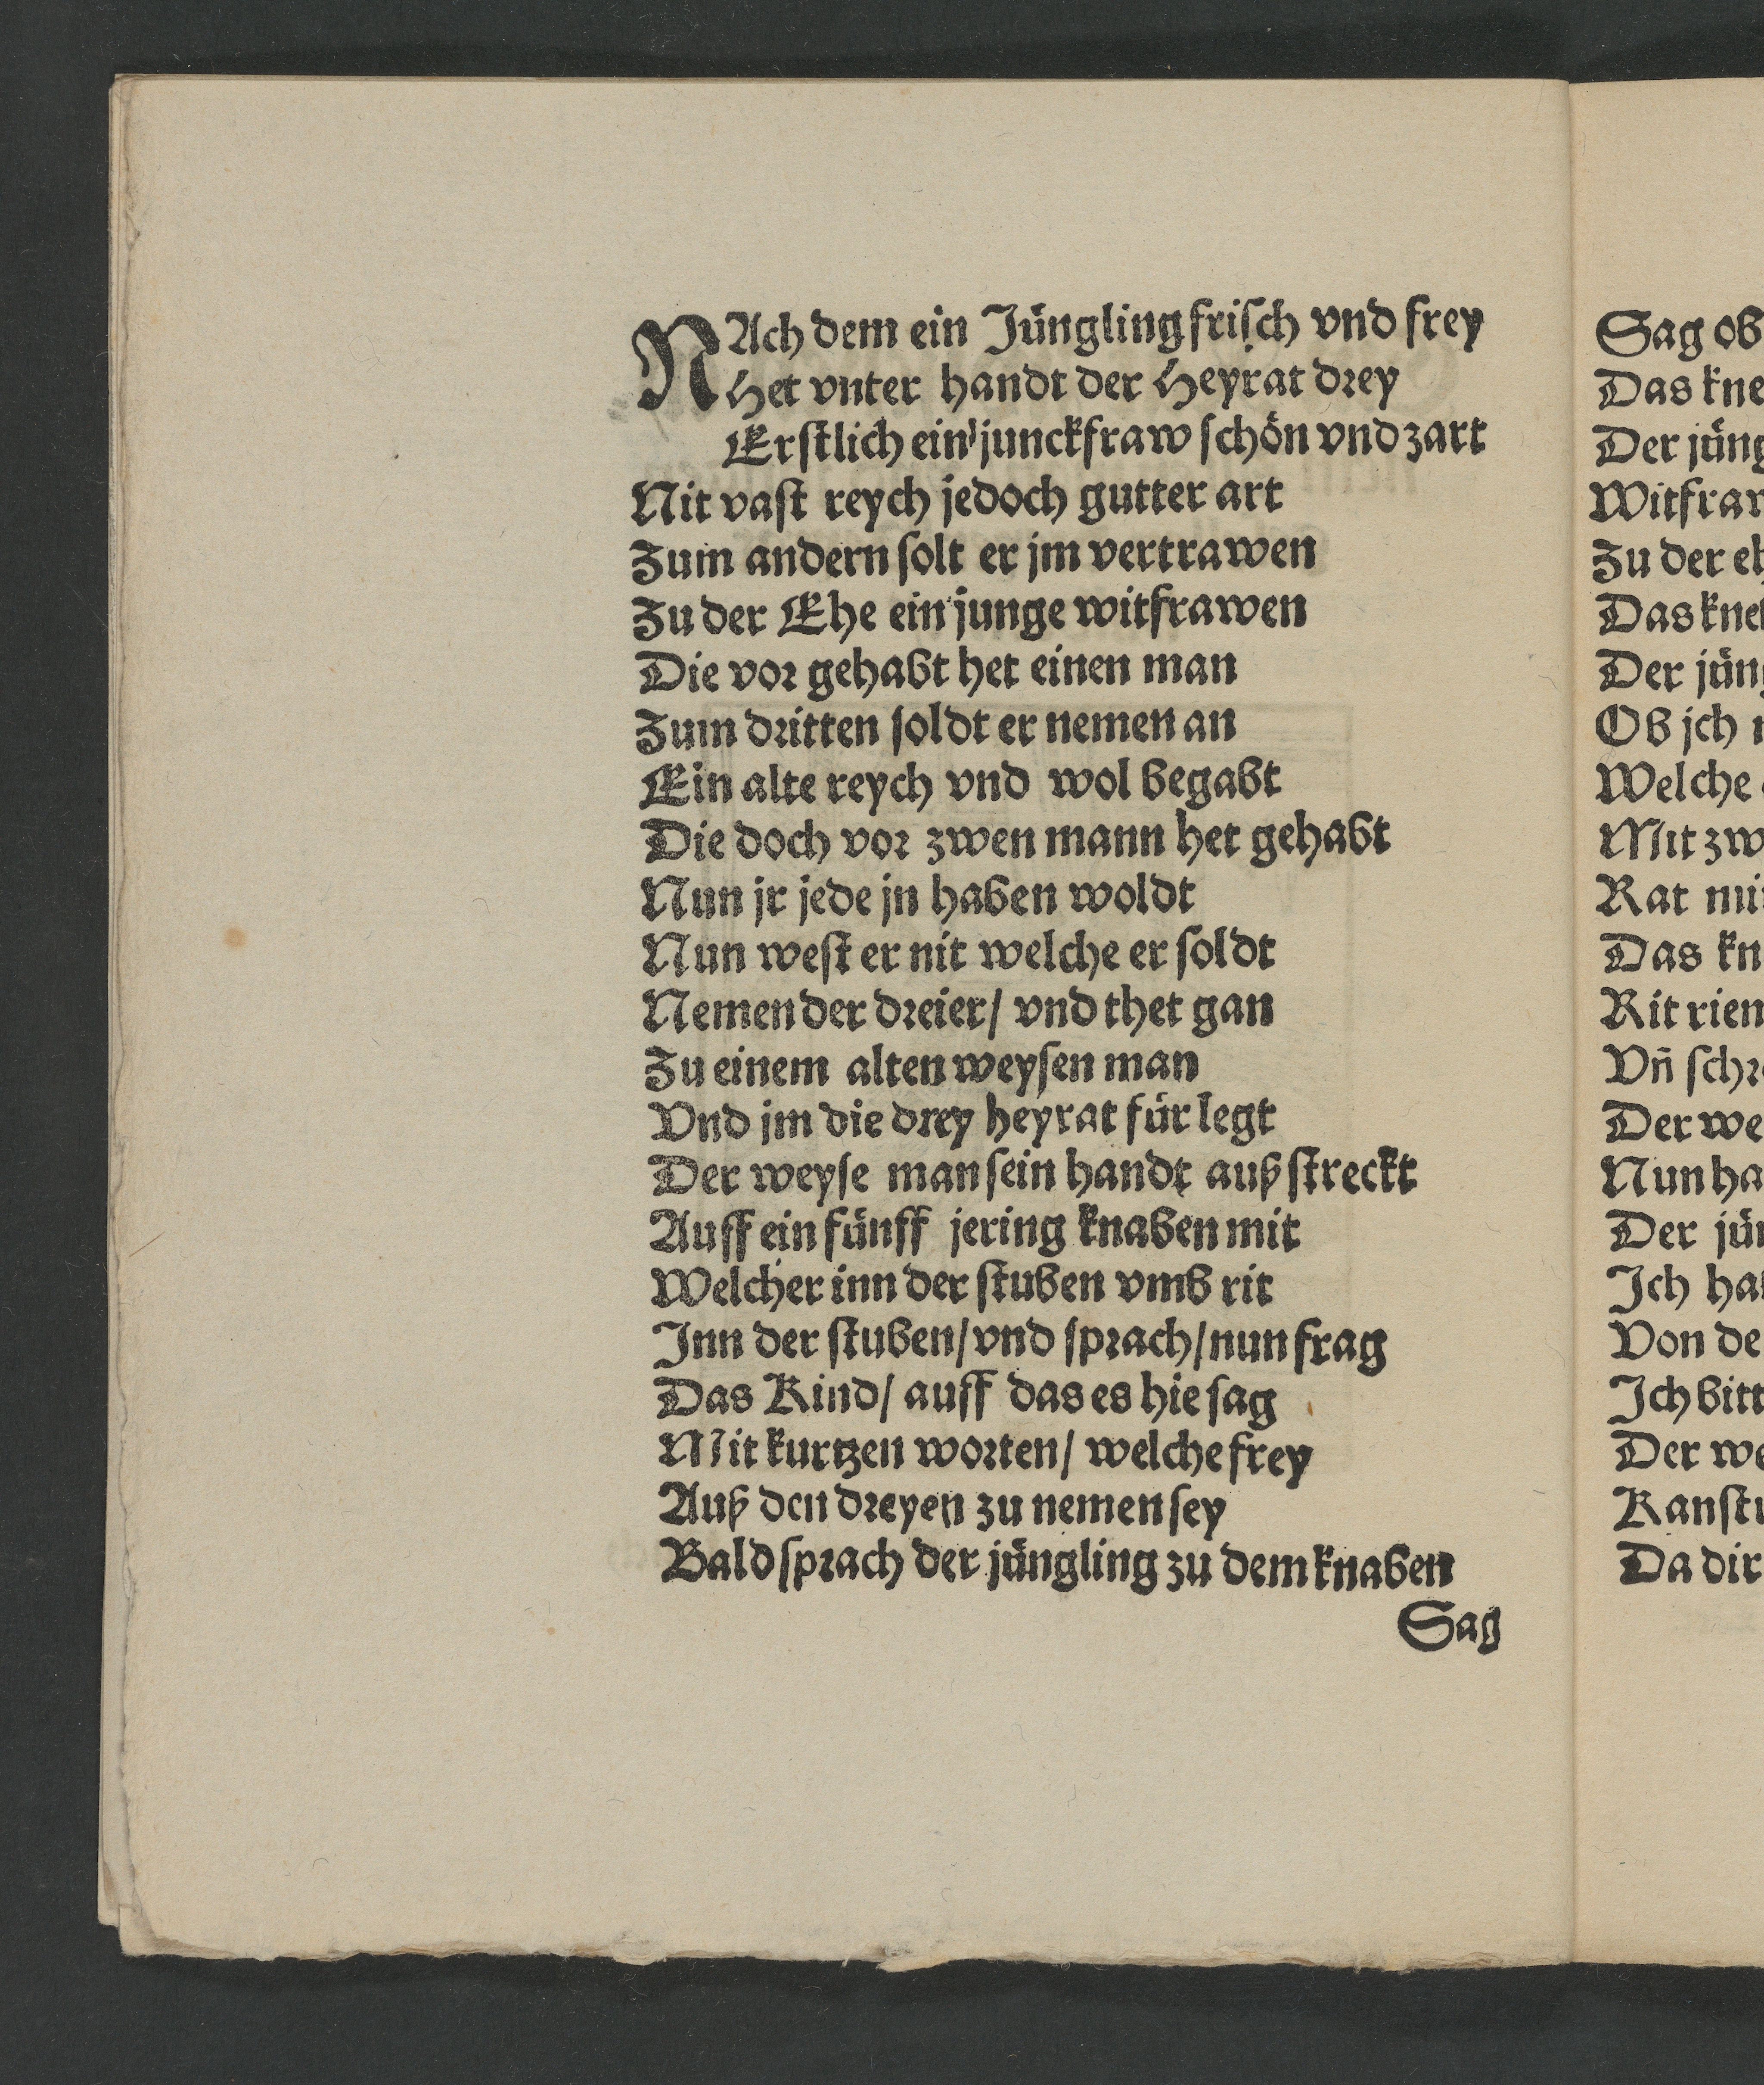 NAch dem ein Jüngling frisch vnd frey
Het vnter handt der Heyrat drey
Erstlich ein junckfraw schön vnd zart
Nit vast reych jedoch gutter art
Zum andern solt er jm vertrawen
Zu der Ehe ein junge witfrawen
Die vor gehabt het einen man
Zum dritten soldt er nemen an
Ein alte reych vnd wol begabt
Die doch vor zwen mann het gehabt
Nun jr jede jn haben woldt
Nun west er nit welche er soldt
Nemen der dreier/ vnd thet gan
Zu einem alten weysen man
Vnd jm die drey heyrat für legt
Der weyse man sein handt auß streckt
Auff ein fünff jering knaben mit
Welcher inn der stuben vmb rit
Inn der stuben/ vnd sprach/ nun frag
Das Kind/ auff das es hie sag
Mit kurtzen worten/ welche frey
Auß den dreyen zu nemen sey
Bald sprach der jüngling zu dem knaben
Sag
Sag ob
Das kne
Der jüng
Witfraw
Zu der eh
Das kne
Der jüng
Ob jch
Welche
Mit zw
Rat mir
Das kn
Rit rien
Vñ schr
Der we
Nun ha
Der jün
Ich hab
Von de
Ich bitt
Der we
Kanstu
Da dir